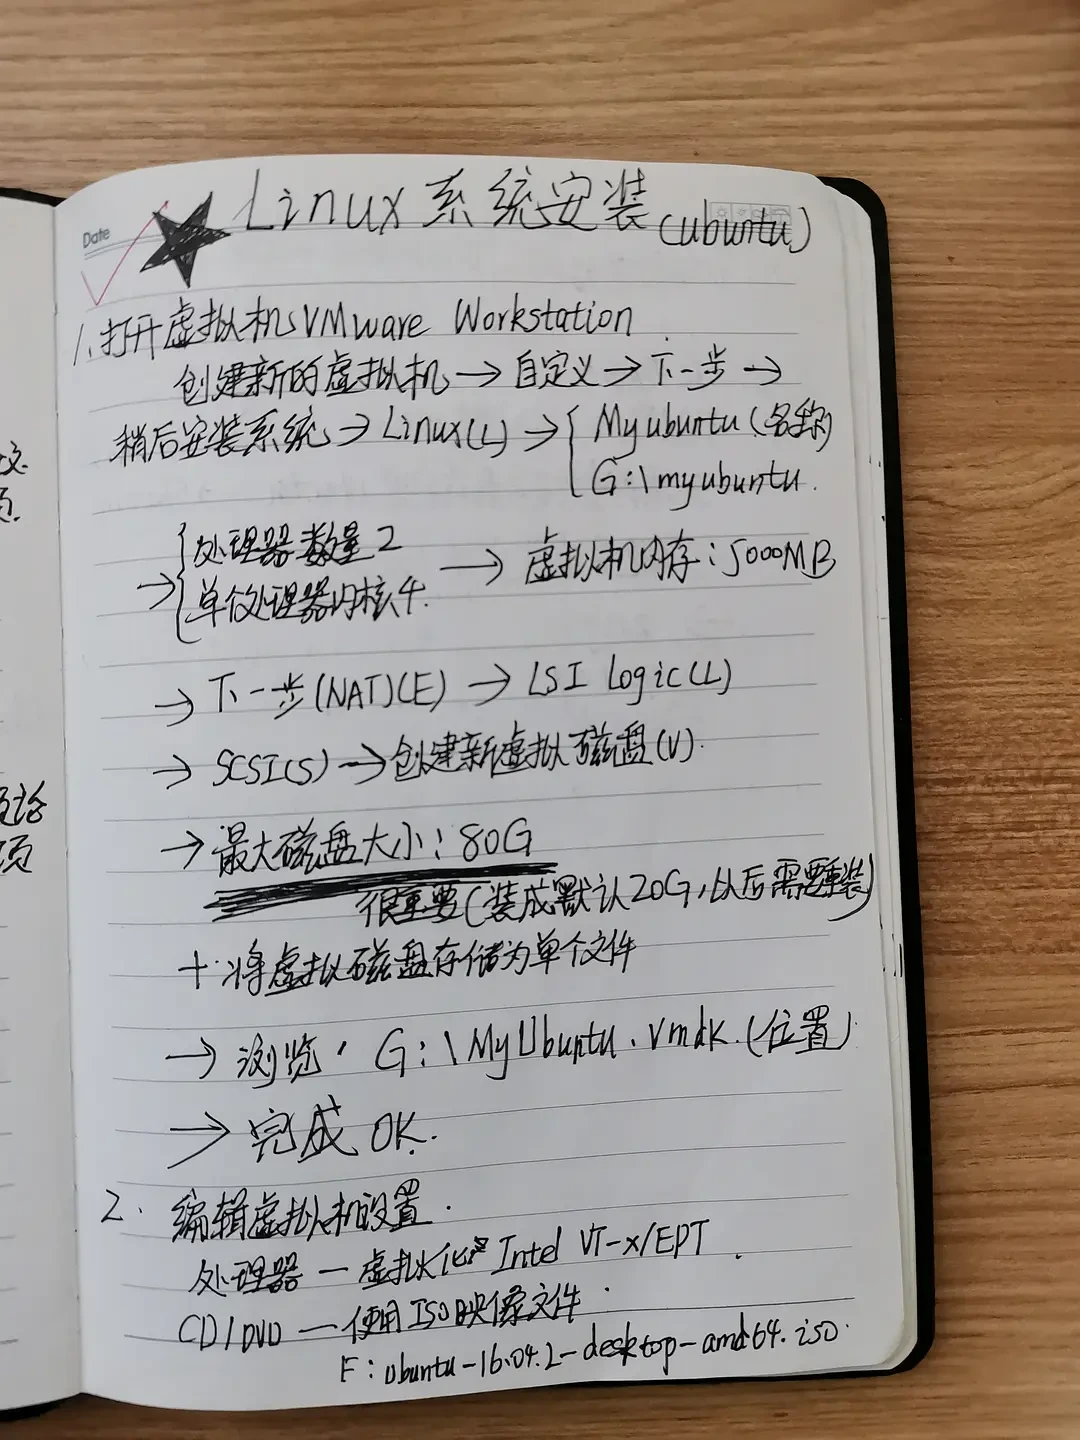 Date
Linux系统安装(ubuntu)
1.打开虚拟机VMware Workstation
创建新的虚拟机→自定义→下一步→
稍后安装系统→Linux(L)→{Myubuntu(名称)
G:\myubuntu.
→{处理器数量2
单个处理器内核4.
→虚拟机内存:5000MB
→下一步(NAT)(E)→LSI Logic(L)
→SCSI(S)→创建新虚拟磁盘(V).
→最大磁盘大小:80G
很重要(装成默认20G,以后需要重装)
+将虚拟磁盘存储为单个文件
→浏览, G:\MyUbuntu.vmdk.(位置)
→完成 OK.
2.编辑虚拟机设置.
处理器—虚拟化 Intel VT-x/EPT.
CD/DVD—使用ISO映像文件.
F:ubuntu-16.04.2-desktop-amd64.iso.